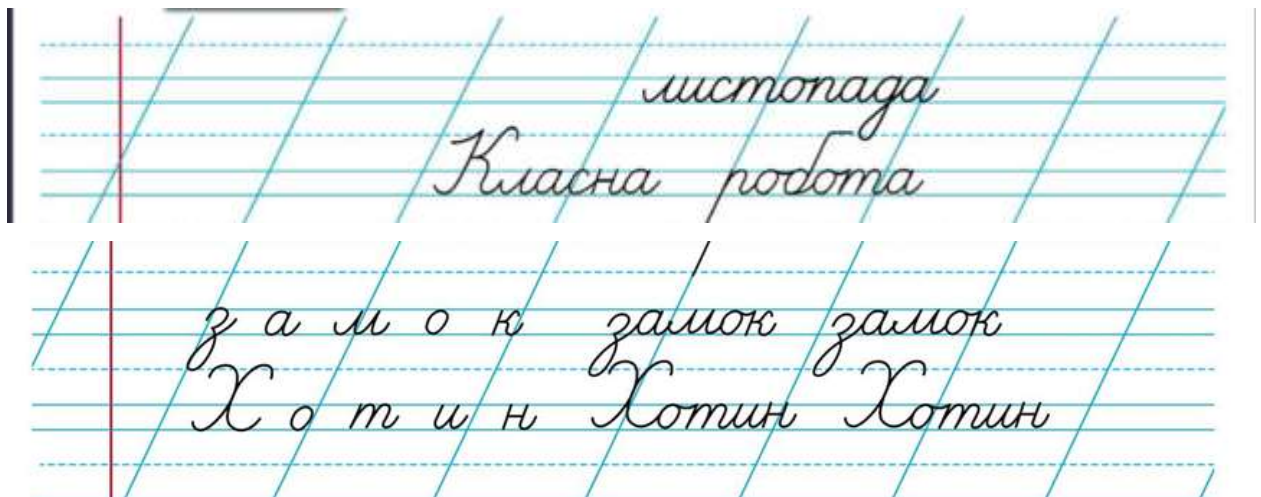 листопада
Класна робота
з а м о к замок замок
Х о т и н Хотин Хотин